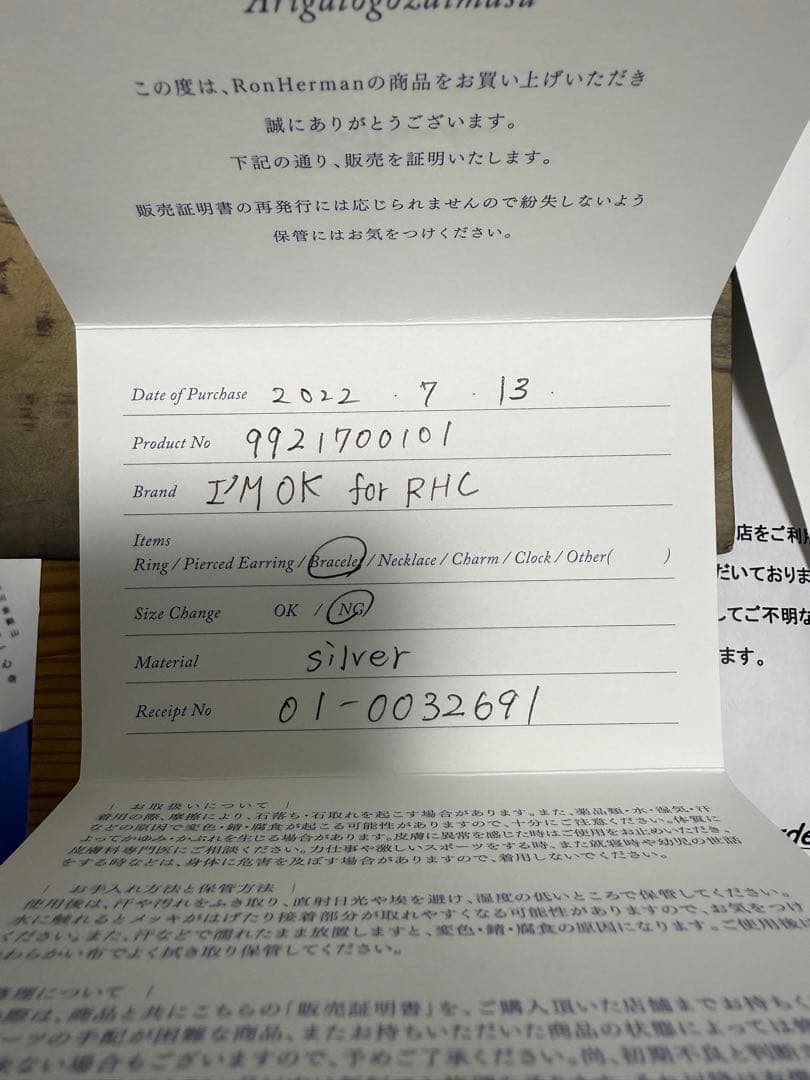 Arigatogozaimasu
この度は、RonHermanの商品をお買い上げいただき
誠にありがとうございます。
下記の通り、販売を証明いたします。
販売証明書の再発行には応じられませんので紛失しないよう
保管にはお気をつけください。
Date of Purchase 2022 . 7 . 13 .
Product No 9921700101
Brand I'M OK for RHC
Items
Ring / Pierced Earring / Bracelet / Necklace / Charm / Clock / Other( )
Size Change OK / NG
Material silver
Receipt No 01-0032691
店をご利用
だいておりま
してご不明な
ます。
| お取扱いについて |
着用の際、摩擦により、石落ち・石取れを起こす場合があります。また、薬品類・水・湿気・汗
などの原因で変色・錆・腐食が起こる可能性がありますので、十分にご注意ください。体質に
よってかゆみ・かぶれを生じる場合があります。皮膚に異常を感じた時はご使用をお止めいただき、
皮膚科専門医にご相談ください。力仕事や激しいスポーツをする時、また就寝時や幼児の世話
をする時などは、身体に危害を及ぼす場合がありますので、着用しないでください。
| お手入れ方法と保管方法 |
使用後は、汗や汚れをふき取り、直射日光や埃を避け、湿度の低いところで保管してください。
水に触れるとメッキがはげたり接着部分が取れやすくなる可能性がありますので、お気をつけ
ください。また、汗などで濡れたまま放置しますと、変色・錆・腐食の原因になります。ご使用後に
わらかい布でよく拭き取り保管してください。
修理について |
の際は、商品と共にこちらの「販売証明書」を、ご購入頂いた店舗までお持ちく
ーツの手配が困難な商品、またお持ちいただいた商品の状態によっては
来ない場合もございますので、予めご了承ください。尚、初期不良と判断